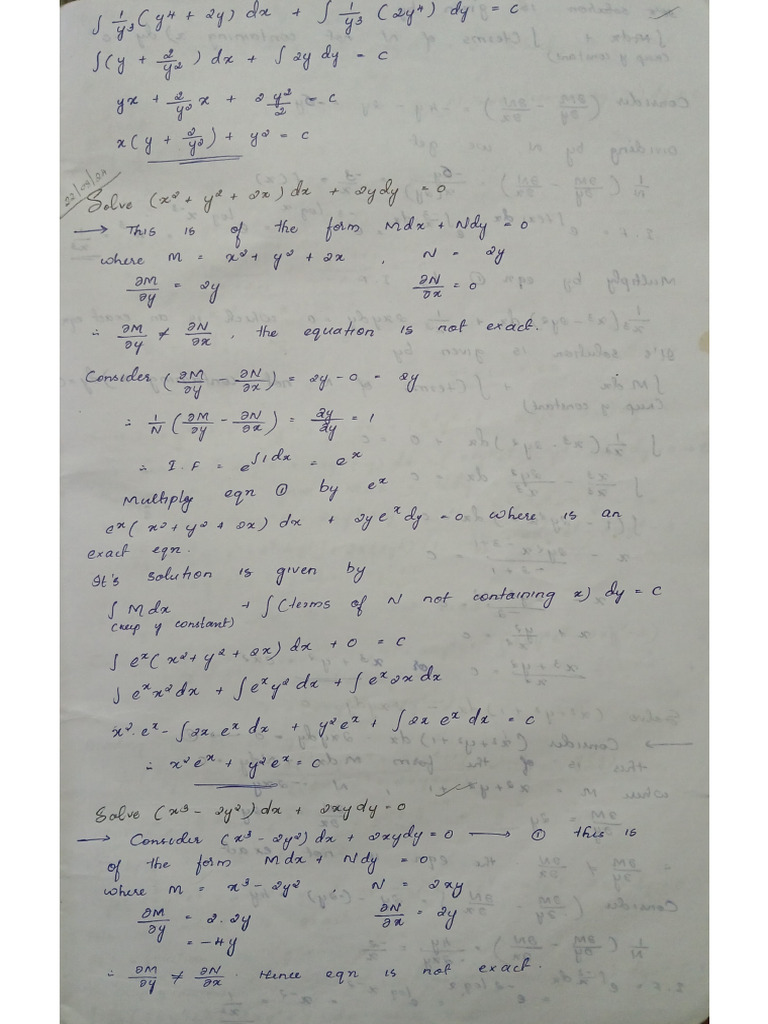 ∫ 1/y³ (y⁴ + 2y) dx + ∫ 1/y³ (2y⁴) dy = c
∫(y + 2/y²) dx + ∫ 2y dy = c
yx + 2/y² x + 2 y²/2 = c
x(y + 2/y²) + y² = c
Solve (x² + y² + 2x) dx + 2y dy = 0
→ This is of the form Mdx + Ndy = 0
where M = x² + y² + 2x , N = 2y
∂M/∂y = 2y ∂N/∂x = 0
∴ ∂M/∂y ≠ ∂N/∂x , the equation is not exact.
Consider (∂M/∂y - ∂N/∂x) = 2y - 0 = 2y
∴ 1/N (∂M/∂y - ∂N/∂x) = 2y/2y = 1
∴ I.F = e^∫1dx = eˣ
Multiply eqn ① by eˣ
eˣ(x² + y² + 2x) dx + 2y eˣ dy = 0 where is an
exact eqn.
It's solution is given by
∫ M dx + ∫(terms of N not containing x) dy = c
(keep y constant)
∫ eˣ(x² + y² + 2x) dx + 0 = c
∫ eˣ x² dx + ∫ eˣ y² dx + ∫ eˣ 2x dx
x². eˣ - ∫ 2x. eˣ dx + y² eˣ + ∫ 2x eˣ dx = c
∴ x² eˣ + y² eˣ = 0
Solve (x³ - 2y²) dx + 2xy dy = 0
→ Consider (x³ - 2y²) dx + 2xy dy = 0 → ① this is
of the form Mdx + Ndy = 0
where M = x³ - 2y² , N = 2xy
∂M/∂y = 2.2y ∂N/∂x = 2y
= -4y
∴ ∂M/∂y ≠ ∂N/∂x . Hence eqn is not exact.